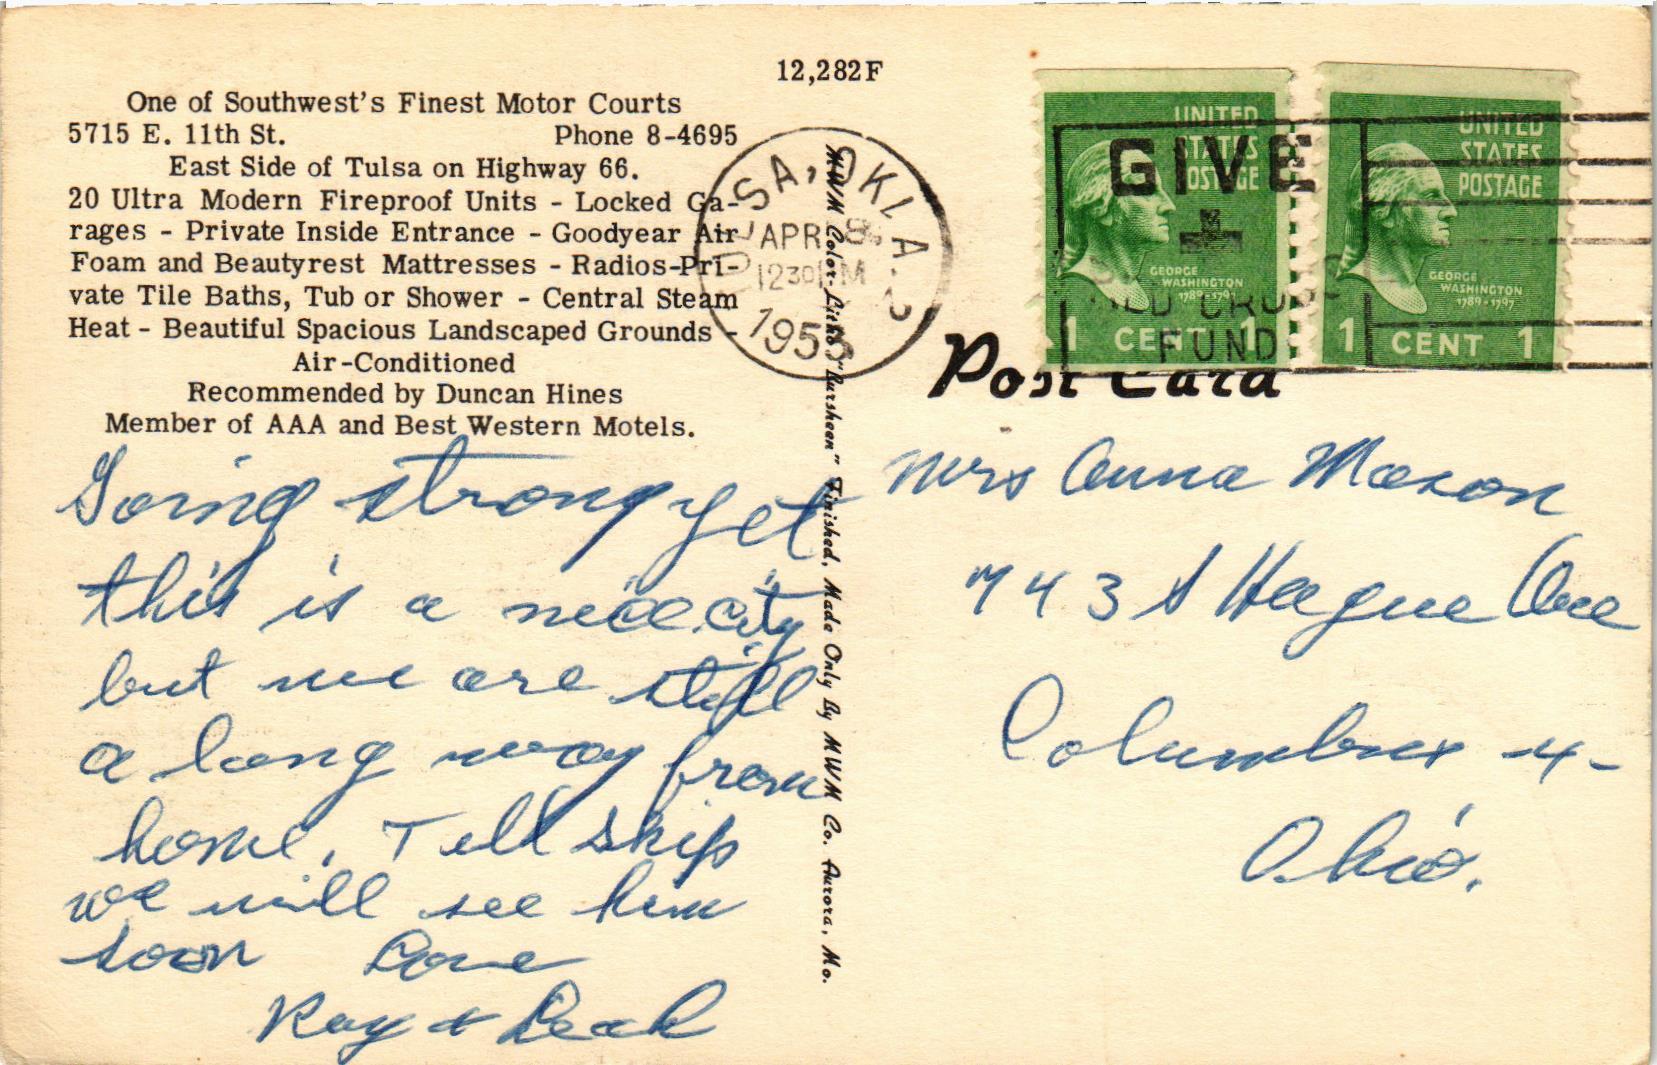 12,282F
One of Southwest's Finest Motor Courts
5715 E. 11th St. Phone 8-4695
East Side of Tulsa on Highway 66.
20 Ultra Modern Fireproof Units - Locked Ga-
rages - Private Inside Entrance - Goodyear Air
Foam and Beautyrest Mattresses - Radios-Pri-
vate Tile Baths, Tub or Shower - Central Steam
Heat - Beautiful Spacious Landscaped Grounds -
Air-Conditioned
Recommended by Duncan Hines
Member of AAA and Best Western Motels.
Going strong yet
this is a nice city
but we are still
a long way from
home. Tell Skip
we will see him
soon Love
Ray & Leah
MWM Color-Litho "Bursheen" Finished, Made Only By MWM Co. Aurora, Mo.
TULSA, OKLA.
APR 8
1230 PM
GIVE
RED CROSS
FUND
UNITED
STATES
POSTAGE
GEORGE
WASHINGTON
1789-1797
1 CENT 1
UNITED
STATES
POSTAGE
GEORGE
WASHINGTON
1789-1797
1 CENT 1
Post Card
Mrs Anna Mason
743 S Hague Ave
Columbus -4-
Ohio.